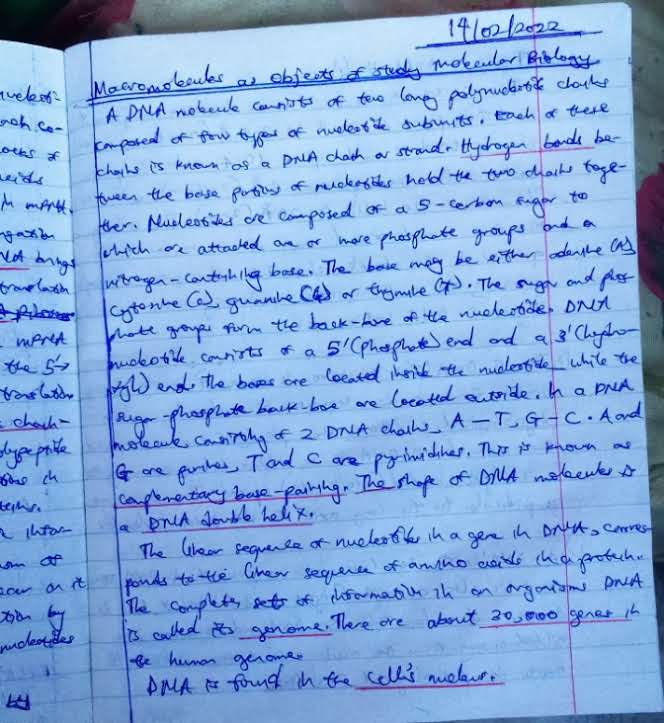 nucleoti-
each co-
ocks of
mRNA.
RNA brings
translation
mRNA
the 5'→
translation
chain-
olypeptide
ions in
teins.
infor-
ear on it
tion by
nucleotides
14/02/2022
Macromolecules as Objects of study molecular Biology
A DNA molecule consists of two long polynucleotide chains
composed of four types of nucleotide subunits. Each of these
chains is known as a DNA chain or strand. Hydrogen bonds be-
tween the base portions of nucleotides hold the two chains toge-
ther. Nucleotides are composed of a 5-carbon sugar to
which are attached one or more phosphate groups and a
nitrogen-containing base. The base may be either adenine (A)
cytosine (C), guanine (G) or thymine (T). The sugar and phos-
phate groups form the back-bone of the nucleotides. DNA
nucleotide consists of a 5' (phosphate) end and a 3' (hydro-
xyl) end. The bases are located inside the nucleotide while the
sugar-phosphate back-bone are located outside. In a DNA
molecule consisting of 2 DNA chains, A-T, G-C. A and
G are purines, T and C are pyrimidines. This is known as
complementary base-pairing. The shape of DNA molecules is
a DNA double helix.
The linear sequence of nucleotides in a gene in DNA, corres-
ponds to the linear sequence of amino acids in a protein.
The complete sets of information in an organisms DNA
is called its genome. There are about 30,000 genes in
the human genome.
DNA is found in the cell's nucleus.